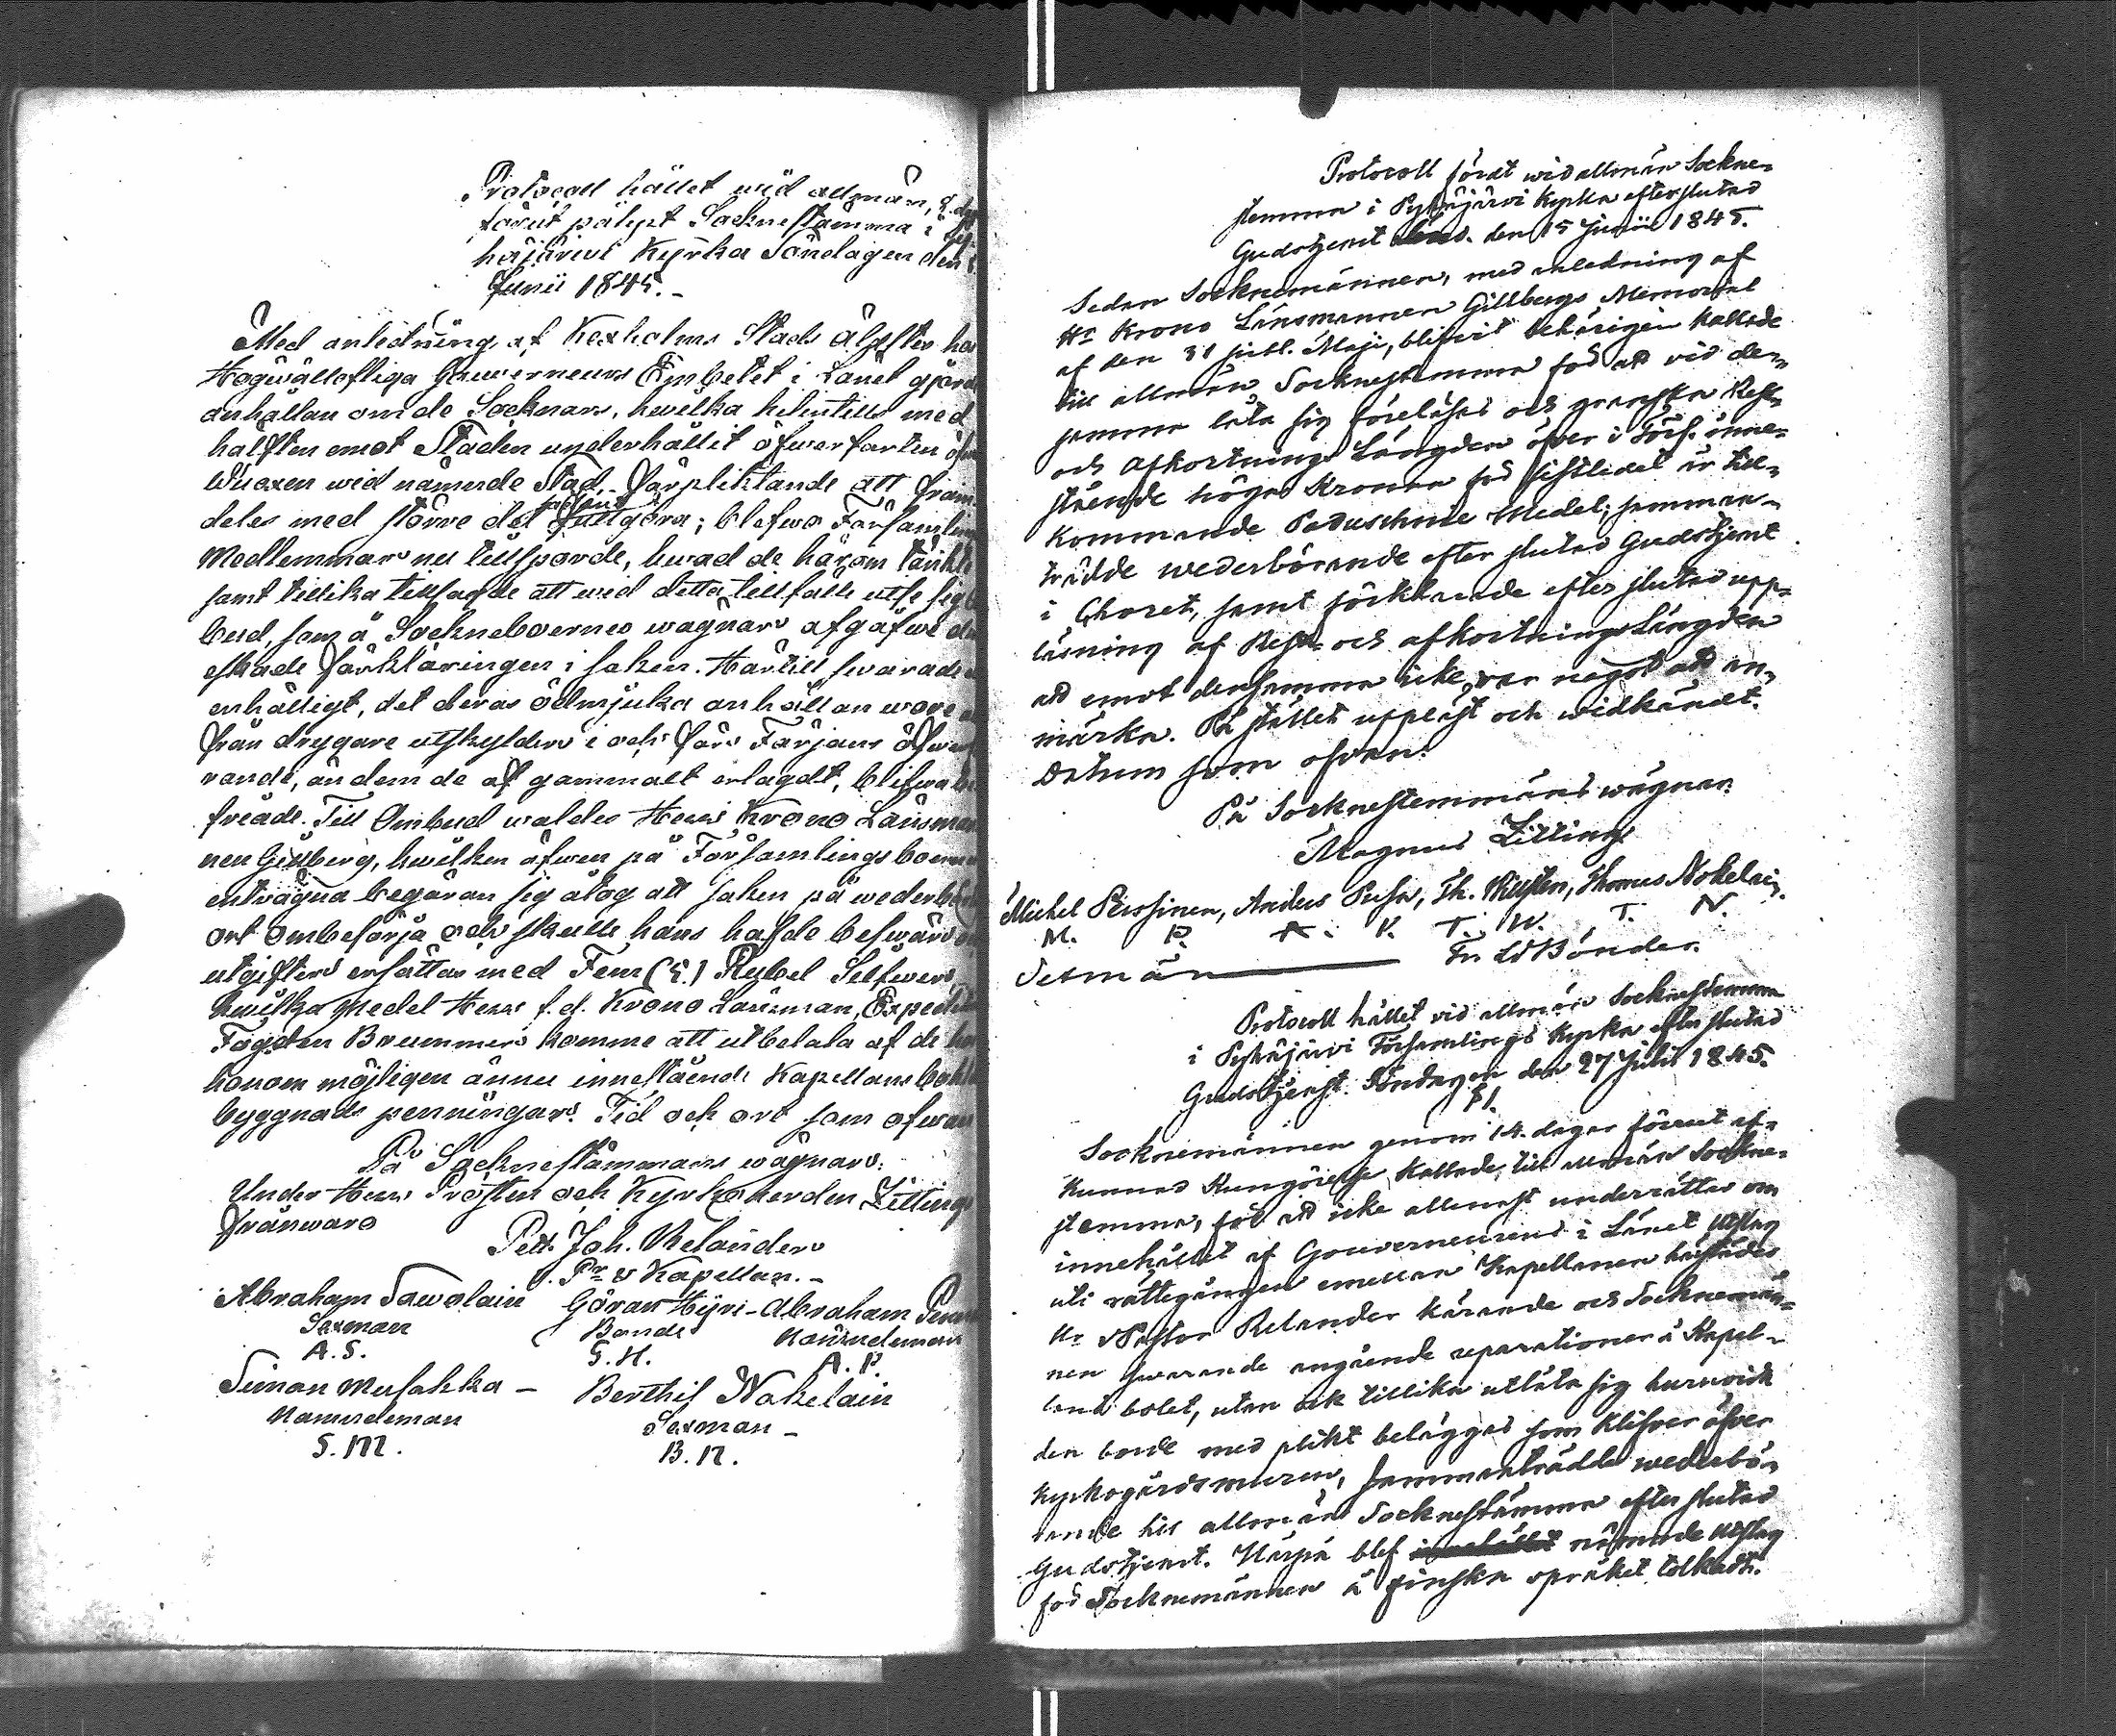 Protocoll hållet wid allmän, 8. dgr
förut pålyst Socknestämma i Py-
häjärwi Kyrka Söndagen den
Junii 1845.-
Med anledning af Kexholms Stads Älpster hos
Högwällofliga Gouverneurs Embetet i Länet gjorde
anhållan om de Socknars, hwilka helintills med
hälften emot Staden underhållit öfwerfarten öfwer
Wuoxen wid nämnde Stad förpliktande att fram-
deles med större del fullgöra; blefwo Församlings
Medlemmar nu tillsporde, hwad de härom tänkte
samt tillika tillsagde att wid detta tillfälle utse sig
bud, som å Sockneboernes wägnar afgåfwe den
eskade förkläringen i saken. Härtill swarades
enhälligt, det deras ödmjuka anhållan wore att
från drygare utskylder i och för Färjans öfwer
rande, än dem de af gammalt erlagdt, blifwa be
friade. Till Ombud waldes Herr Krono Länsman
nen Gillberg, hwilken äfwen på Församlingsboernes
entrågna begäran sig åtog att saken på wederbörlig
ort ombesörja och skulle hans hafde beswär och
utgifter ersättas med Fem (5.) Rubel Silfwer,
hwilka medel Herr f.d. Krono Länsman, Expeditions
Fogden Brummer komme att utbetala af de hos
honom möjligen ännu innestående Kapellans bohls
byggnads penningar. Tid och ort som ofwan
På Socknestämmans wägnar:
Under Herr Prosten och Kyrkoherden Zittings
frånwaro
Pett. Joh. Relander
v. Pr & Kapellan.-
Abraham Sawolain Göran Hijri - Abraham
Sexman Bonde Nämndeman
A. S. G. H. A. P.
Simon Musakka - Berthil Nokelain
Nämndeman Sexman -
S. M. B. N.
Protocoll fördt wid allmän Sockne-
stemma i Pyhäjärvi Kyrka efter slutad
Gudstjenst den 15 Junii 1845.
Sedan Socknemännen, med anledning af
Hr Krono Länsmannen Gillbergs Memorial
af den 31 sistl. Maji, blifvit behörigen kallade
till allmän Socknestemma för att vid den-
samma låta sig föreläsas och granska Rest-
och Afkortnings Längden öfver i Förs. inne-
stående höga Kronan för sistlidet år till-
kommande Paduschnie Medel; samman-
trädde wederbörande efter slutad Gudstjenst
i Choret, samt förklarade efter slutad upp-
läsning af Rest- och afkortnings Längden
att emot densamma icke var något att an-
märka. På stället uppläst och widkändt.
Datum som ofvan.
På Socknestemmans wägnar
Magnus Zitting
Michel Pessinen, Anders Pusa, Th. Thomas Nokelain.
M. P. A. P. T. W. T. N.
Sexmän Bönder.
Protocoll hållet vid allmän Socknestemma
i Pyhäjärvi Församlings Kyrka efter slutad
Gudstjenst Söndagen den 27 Julii 1845.
§ 1.
Socknemännen genom 14. dagar förut af-
kunnad Kungörelse kallade till allmän Sockne-
stemma, för att icke allenast underrättas om
innehållet af Gouverneurens i Länet utslag
uti rättegången emellan Kapellanen härstädes
Hr vPastor Relander kärande och Socknemän-
nen swarande angående reparationer å Kapel-
lans bolet, utan ock tillika utlåta sig huruvida
den borde med plikt beläggas som klifver öfver
kyrkogårdsmuren, sammanträdde wederbö-
rande till allmän Socknestämma efter slutad
Gudstjenst. Härpå blef nämnde utslag
för Socknemännen å finska språket tolkadt.